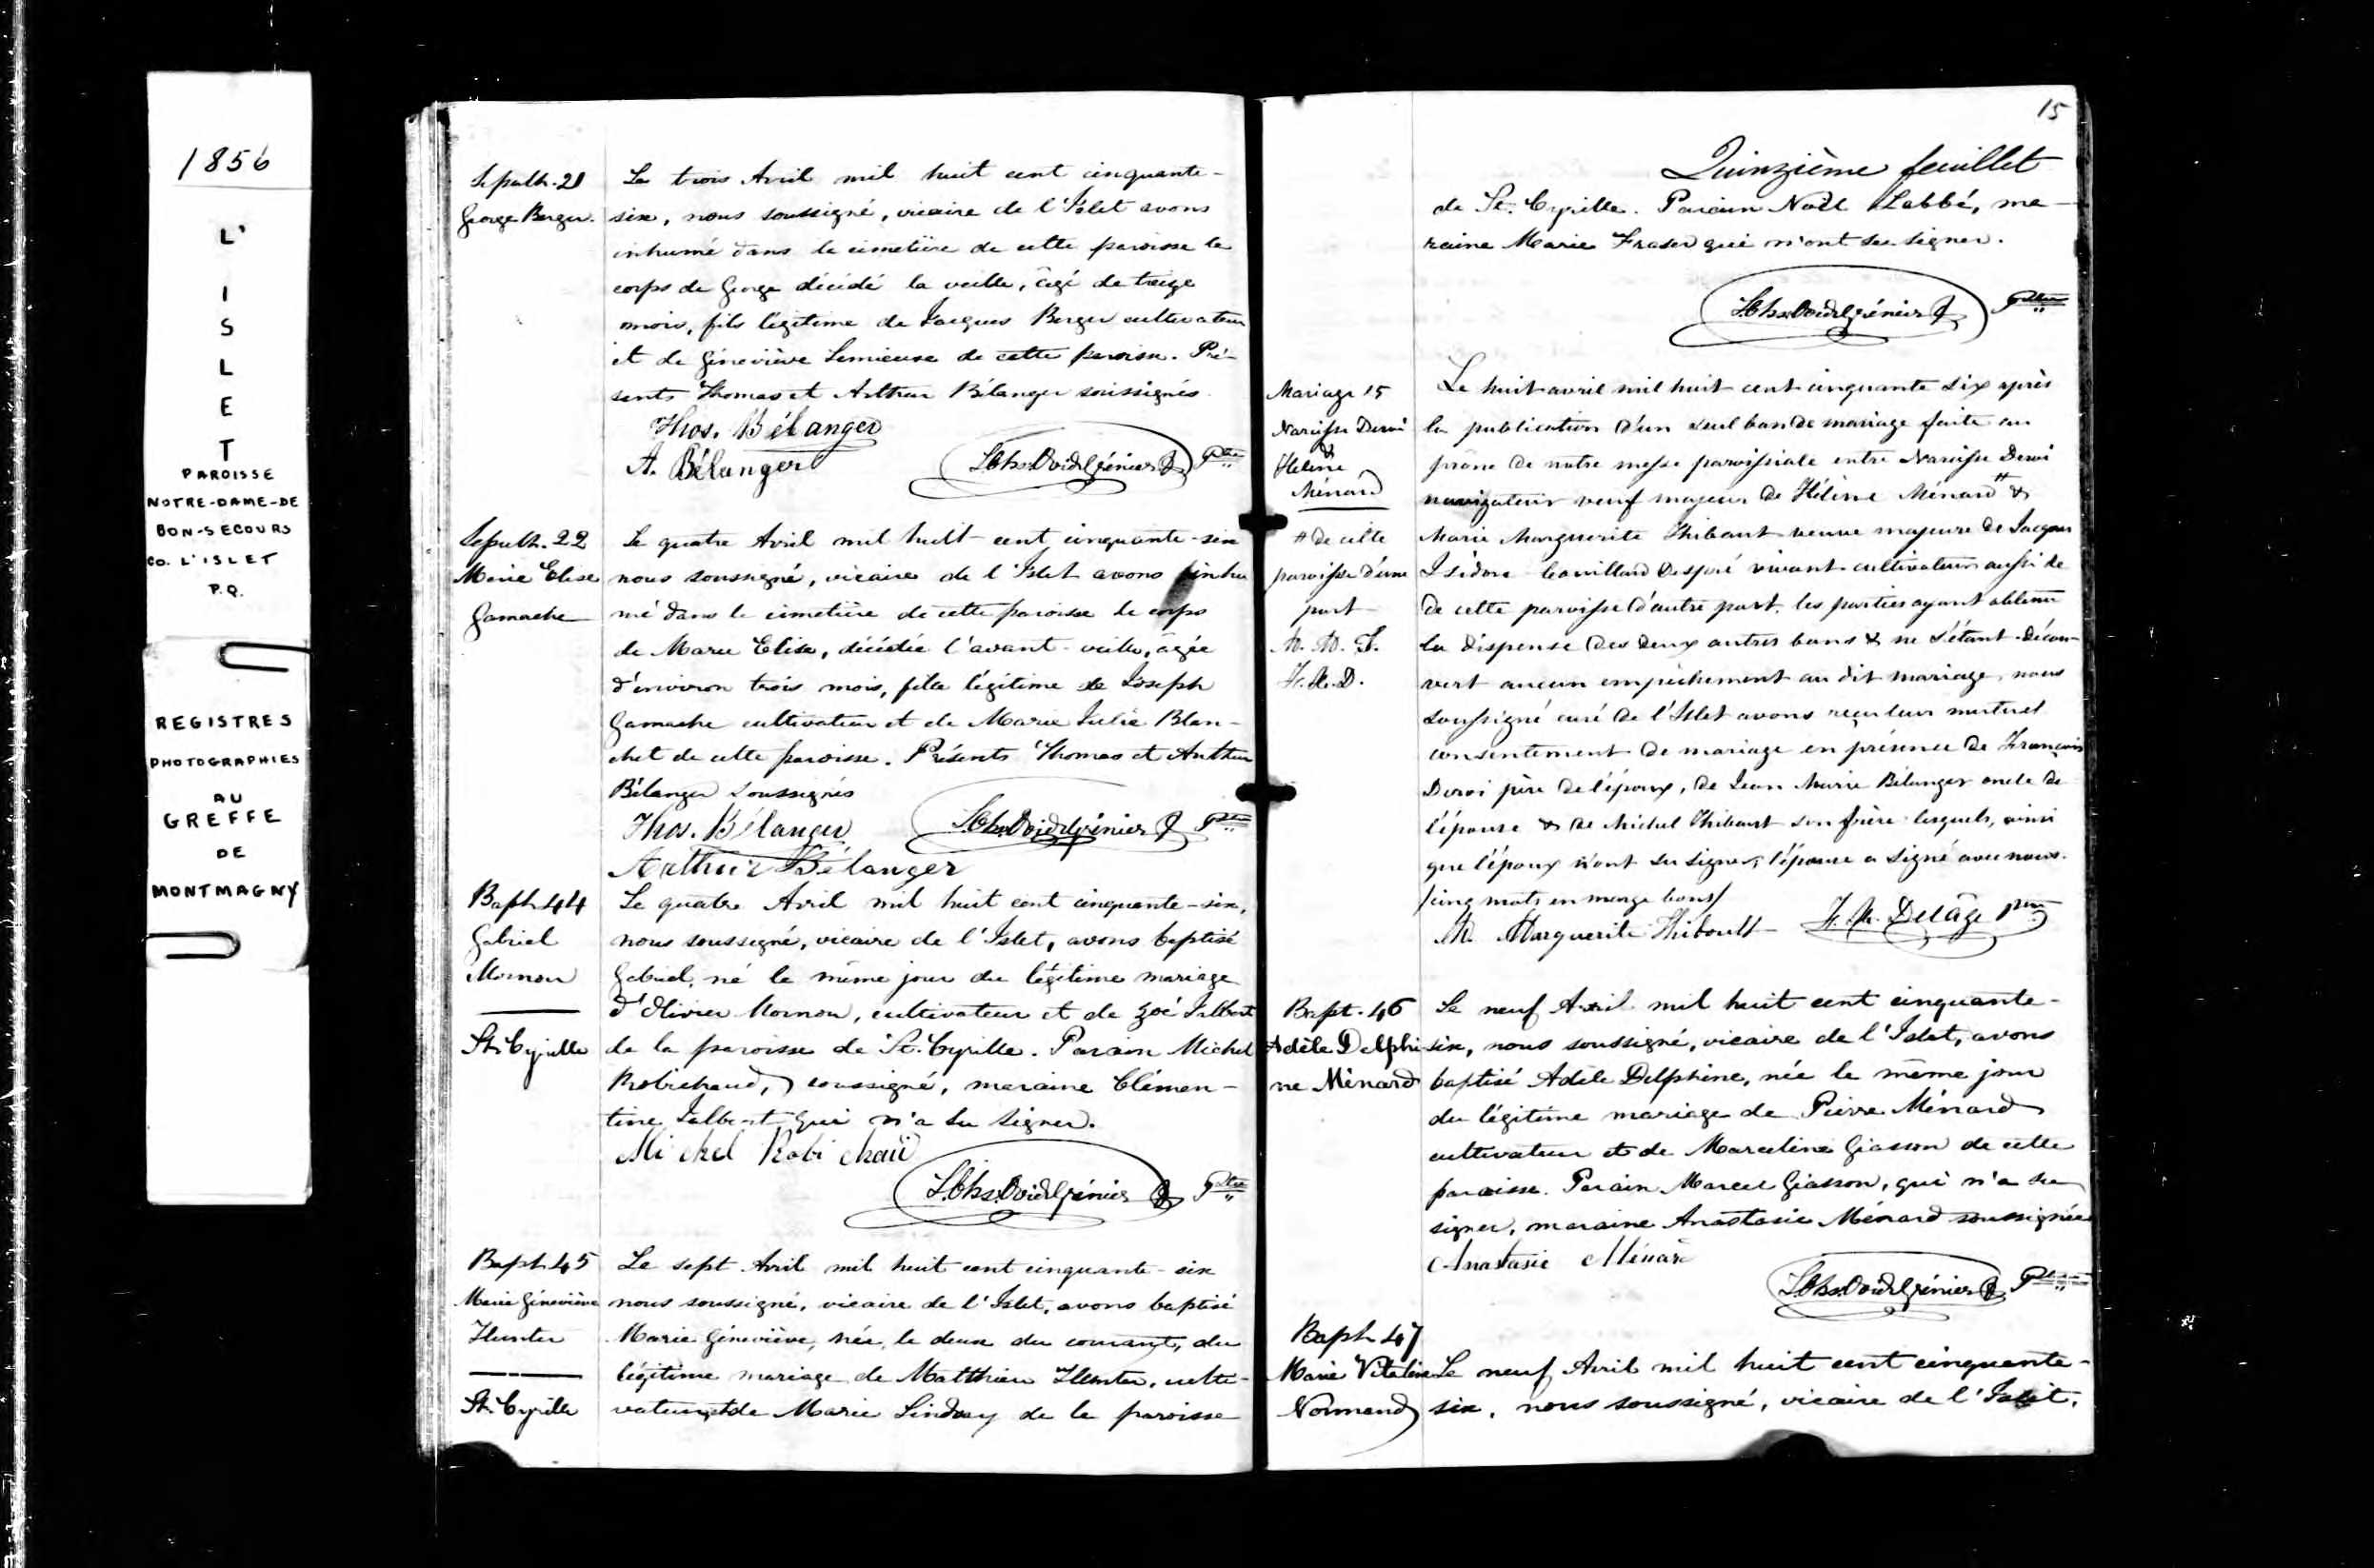 1856
L'
I
S
L
E
T
PAROISSE
NOTRE-DAME-DE
BON-SECOURS
CO. L'ISLET
P.Q.
REGISTRES
PHOTOGRAPHIES
AU
GREFFE
DE
MONTMAGNY
Sepult. 21
George Berger.
Le trois Avril mil huit cent cinquante-
six, nous soussigné, vicaire de l'Islet avons
inhumé dans le cimetière de cette paroisse le
corps de George décédé la veille, âgé de treize
mois, fils légitime de Jacques Berger cultivateur
et de Géneviève Lemieux de cette paroisse. Pré-
sents Thomas et Arthur Bélanger soussignés.
Thos. Bélanger
A. Bélanger
Ptre
Sepult. 22
Marie Elise
Gamache
Le quatre Avril mil huit cent cinquante-six
nous soussigné, vicaire de l'Islet avons inhu
mé dans le cimetière de cette paroisse le corps
de Marie Elise, décédée l'avant-veille, âgée
d'environ trois mois, fille légitime de Joseph
Gamache cultivateur et de Marie Julie Blan-
chet de cette paroisse. Présents Thomas et Arthur
Bélanger soussignés
Thos. Bélanger
Ptre
Arthur Bélanger
Bapt. 44
Gabriel
Mornon
St. Cyrille
Le quatre Avril mil huit cent cinquante-six,
nous soussigné, vicaire de l'Islet, avons baptisé
Gabriel, né le même jour du légitime mariage
d'Olivier Mornon, cultivateur et de Zoé Jalbert
de la paroisse de St. Cyrille. Parain Michel
Robichaud, soussigné, maraine Clémen-
tine Jalbert qui n'a su signer.
Michel Robichaü
Ptre
Bapt. 45
Marie Géneviève
Hunter
St. Cyrille
Le sept Avril mil huit cent cinquante-six
nous soussigné, vicaire de l'Islet, avons baptisé
Marie Géneviève, née le deux du courant, du
légitime mariage de Matthieu Hunter, culti-
vateur et de Marie Lindsay de la paroisse
15
Quinzième feuillet
de St. Cyrille. Parain Noël Labbé, ma-
raine Marie Fraser qui n'ont su signer.
Ptre
Mariage 15
Narcisse Deroi
&
Hélène
Ménard
# de cette
paroisse d'une
part
M. M. T.
F. X. D.
Le huit avril mil huit cent cinquante six après
la publication d'un seul ban de mariage faite au
prône de notre messe paroissiale entre Narcisse Deroi
navigateur veuf majeur de Hélène Ménard # &
Marie Marguerite Thibaut veuve majeure de Jacques
Isidore Couillard Despré vivant cultivateur aussi de
de cette paroisse d'autre part, les parties ayant obtenu
la dispense des deux autres bans & ne s'étant décou-
vert aucun empêchement au dit mariage, nous
soussigné curé de l'Islet avons reçu leur mutuel
consentement de mariage en présence de François
Deroi père de l'époux, de Jean Marie Bélanger oncle de
l'épouse & de Michel Thibaut son frère lesquels, ainsi
que l'époux n'ont su signer, l'épouse a signé avec nous.
/cinq mots en marge bons/
M. Marguerite Thiboult F. X. Delâge ptre
Bapt. 46
Adèle Delphi
ne Ménard
Le neuf Avril mil huit cent cinquante-
six, nous soussigné, vicaire de l'Islet, avons
baptisé Adèle Delphine, née le même jour
du légitime mariage de Pierre Ménard
cultivateur et de Marceline Giasson de cette
paroisse. Parain Marcel Giasson, qui n'a su
signer, maraine Anastasie Ménard soussignée
Anastasie Ménard
Ptre
Bapt. 47
Marie Vitaline
Normand
Le neuf Avril mil huit cent cinquante-
six, nous soussigné, vicaire de l'Islet,